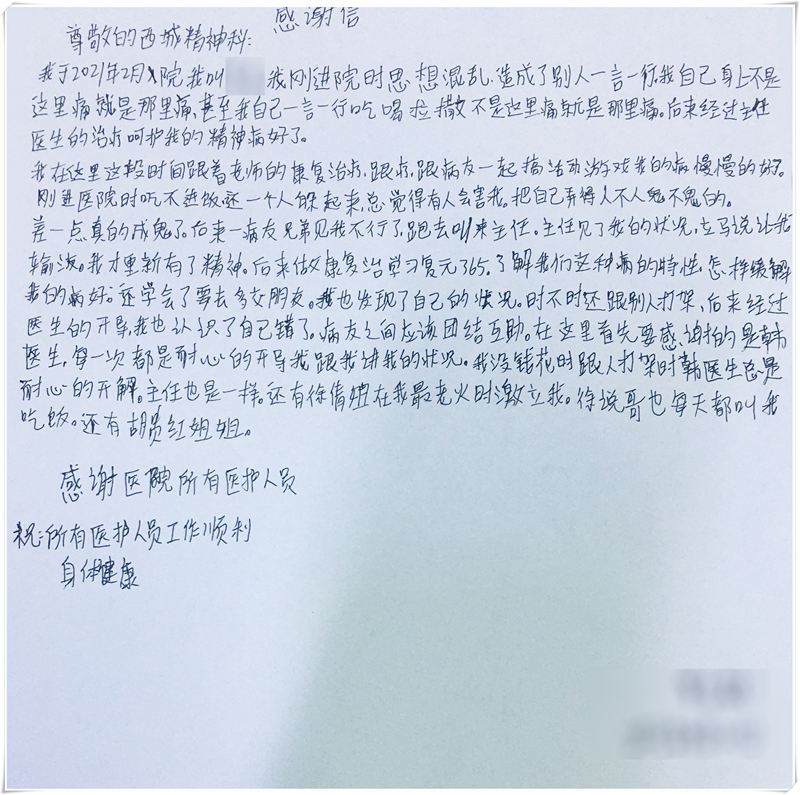 感谢信
尊敬的西城精神科:
我于2021年2月入院我叫 我刚进院时思想混乱.造成了别人一言一行.我自己身上不是
这里痛就是那里痛.甚至我自己一言一行吃喝拉撒不是这里痛就是那里痛。后来经过主任
医生的治疗呵护我的精神病好了。
我在这里这段时间跟着老师的康复治疗.跟疗.跟病友一起搞活动游戏我的病慢慢的好。
刚进医院时吃不进饭还一个人躲起来.总觉得有人会害我。把自己弄得人不人鬼不鬼的。
差一点真的成鬼了。后来一病友兄弟见我不行了.跑去叫来主任。主任见了我的状况,立马说让我
输液。我才重新有了精神。后来做康复治学习复元365.了解我们这种病的特性.怎样缓解
我的病好。还学会了要去多交朋友。我也发现了自己的状况。时不时还跟别人打架,后来经过
医生的开导,我也认识了自己错了。病友之间应该团结互助。在这里首先要感谢的是韩
医生,每一次都是耐心的开导我跟我讲我的状况。我没钱花时跟人打架时韩医生总是
耐心的开解。主任也是一样。还有徐倩姐在我最老火时激立我。徐说哥也每天都叫我
吃饭。还有胡 红姐姐。
感谢医院所有医护人员
祝:所有医护人员工作顺利
身体健康